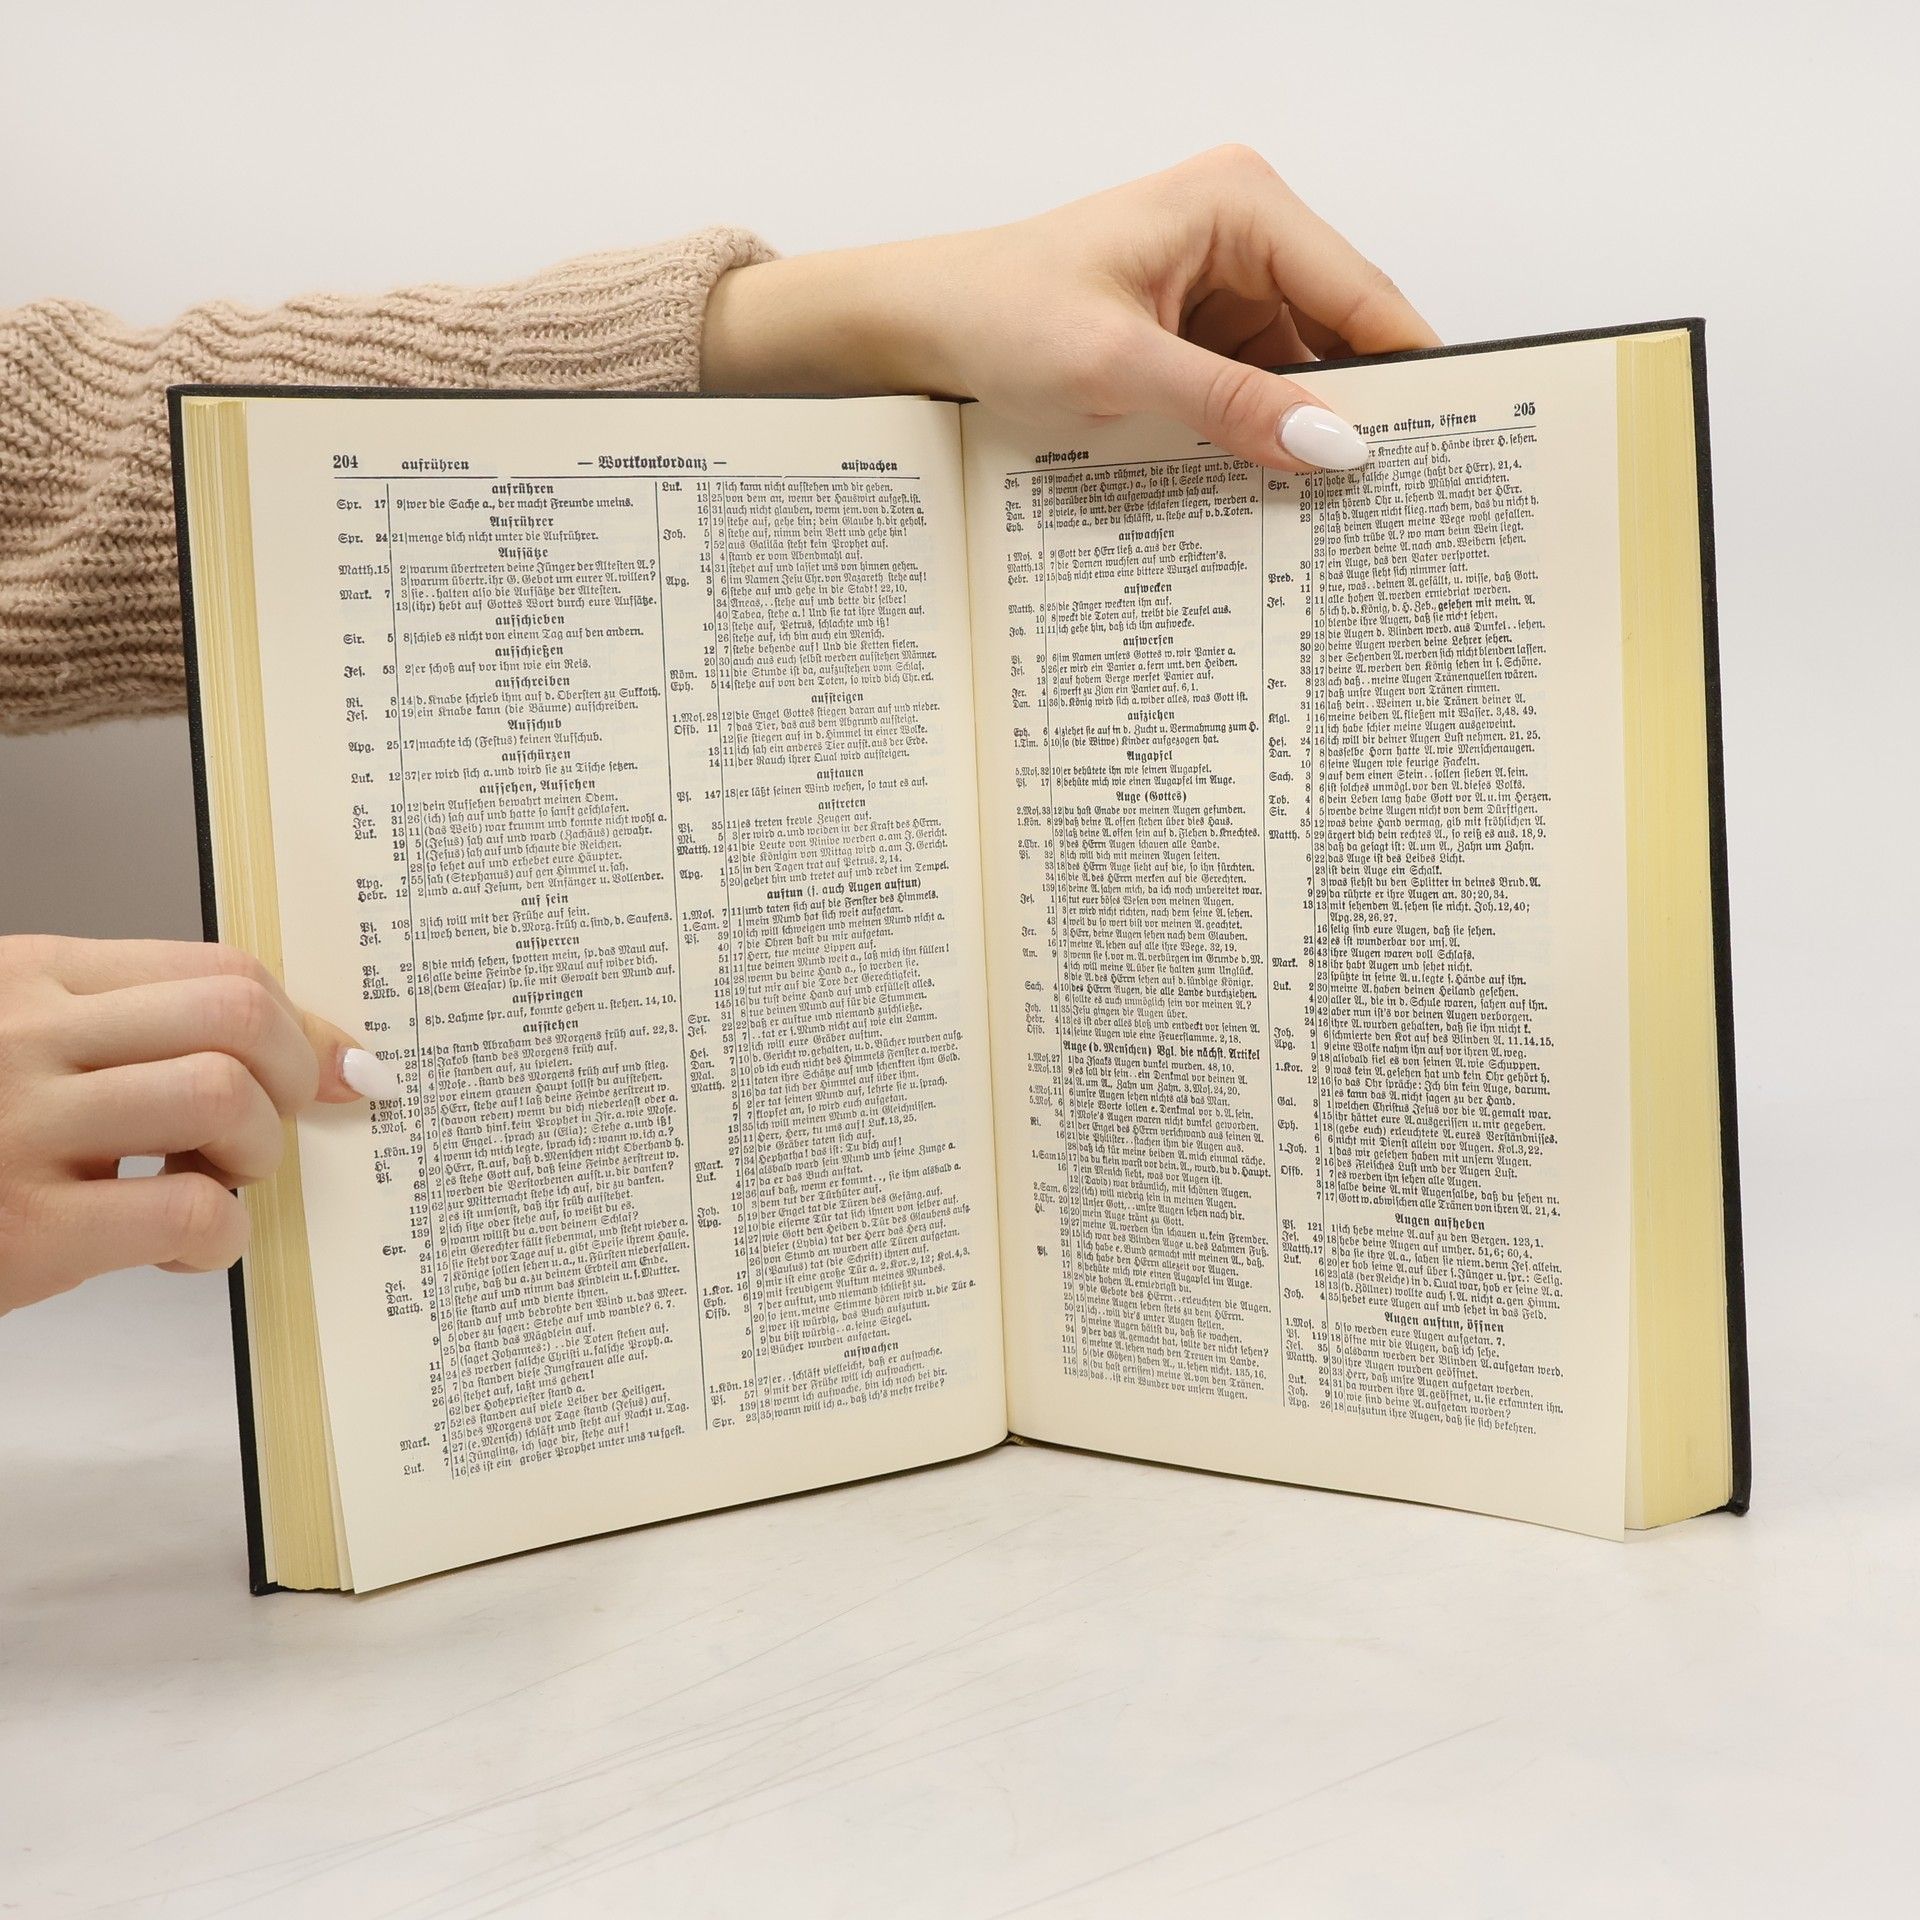 204 aufrühren — Wortkonkordanz — aufwachen
aufrühren
Spr. 17 9 wer die Sache a., der macht Freunde uneins.
Aufrührer
Spr. 24 21 menge dich nicht unter die Aufrührer.
Aufsätze
Matth. 15 2 warum übertreten deine Jünger der Ältesten A.?
3 warum übertr. ihr G. Gebot um eurer A. willen?
Mark. 7 3 sie . . halten also die Aufsätze der Ältesten.
13 (ihr) hebt auf Gottes Wort durch eure Aufsätze.
aufschieben
Sir. 5 8 schieb es nicht von einem Tag auf den andern.
aufschießen
Jes. 53 2 er schoß auf vor ihm wie ein Reis.
aufschreiben
Ri. 8 14 d. Knabe schrieb ihm auf d. Obersten zu Sukkoth.
Jes. 10 19 ein Knabe kann (die Bäume) aufschreiben.
Aufschub
Apg. 25 17 machte ich (Festus) keinen Aufschub.
aufschürzen
Luk. 12 37 er wird sich a. und wird sie zu Tische setzen.
aufsehen, Aufsehen
Hi. 10 12 dein Aufsehen bewahrt meinen Odem.
Jer. 31 26 (ich) sah auf und hatte so sanft geschlafen.
Luk. 13 11 (das Weib) war krumm und konnte nicht wohl a.
19 5 (Jesus) sah auf und ward (Zachäus) gewahr.
21 1 (Jesus) sah auf und schaute die Reichen.
28 so sehet auf und erhebet eure Häupter.
Apg. 7 55 sah (Stephanus) auf gen Himmel u. sah.
Hebr. 12 2 und a. auf Jesum, den Anfänger u. Vollender.
auf sein
Ps. 108 3 ich will mit der Frühe auf sein.
Jes. 5 11 weh denen, die d. Morg. früh a. sind, d. Saufens.
aufsperren
Ps. 22 8 die mich sehen, spotten mein, sp. das Maul auf.
Klgl. 2 16 alle deine Feinde sp. ihr Maul auf wider dich.
2. Mkb. 6 18 (dem Eleasar) sp. sie mit Gewalt den Mund auf.
aufspringen
Apg. 3 8 d. Lahme spr. auf, konnte gehen u. stehen. 14, 10.
aufstehen
Mos. 21 14 da stand Abraham des Morgens früh auf. 22, 3.
28 18 Jakob stand des Morgens früh auf.
32 6 sie standen auf, zu spielen.
34 4 Mose . . stand des Morgens früh auf und stieg.
3. Mos. 19 32 vor einem grauen Haupt sollst du aufstehen.
4. Mos. 10 35 HErr, stehe auf! laß deine Feinde zerstreut w.
5. Mos. 6 7 (davon reden) wenn du dich niederlegst oder a.
34 10 es stand hinf. kein Prophet in Isr. a. wie Mose.
1. Kön. 19 5 ein Engel . . sprach zu (Elia): Stehe a. und iß!
Hi. 7 4 wenn ich mich legte, sprach ich: wann w. ich a.?
Ps. 9 20 HErr, st. auf, daß d. Menschen nicht Oberhand h.
68 2 es stehe Gott auf, daß seine Feinde zerstreut w.
88 11 werden die Verstorbenen aufst. u. dir danken?
119 62 zur Mitternacht stehe ich auf, dir zu danken.
127 2 es ist umsonst, daß ihr früh aufstehet.
139 2 ich sitze oder stehe auf, so weißt du es.
Spr. 6 9 wann willst du a. von deinem Schlaf?
24 16 ein Gerechter fällt siebenmal, und steht wieder a.
31 15 sie steht vor Tage auf u. gibt Speise ihrem Hause.
Jes. 49 7 Könige sollen sehen u. a., u. Fürsten niederfallen.
Dan. 12 13 ruhe, daß du a. zu deinem Erbteil am Ende.
Matth. 2 13 stehe auf und nimm das Kindlein u. s. Mutter.
8 15 sie stand auf und diente ihnen.
26 stand auf und bedrohte den Wind u. das Meer.
9 5 oder zu sagen: Stehe auf und wandle? 6. 7.
25 da stand das Mägdlein auf.
11 5 (saget Johannes:) . . die Toten stehen auf.
24 24 es werden falsche Christi u. falsche Proph. a.
25 7 da standen diese Jungfrauen alle auf.
26 46 stehet auf, laßt uns gehen!
62 der Hohepriester stand a.
27 52 es standen auf viele Leiber der Heiligen.
Mark. 1 35 des Morgens vor Tage stand (Jesus) auf.
4 27 (e. Mensch) schläft und steht auf Nacht u. Tag.
Luk. 7 14 Jüngling, ich sage dir, stehe auf!
16 es ist ein großer Prophet unter uns aufgest.
Luk. 11 7 ich kann nicht aufstehen und dir geben.
13 25 von dem an, wenn der Hauswirt aufgest. ist.
16 31 auch nicht glauben, wenn jem. von d. Toten a.
17 19 stehe auf, gehe hin; dein Glaube h. dir geholf.
Joh. 5 8 stehe auf, nimm dein Bett und gehe hin!
7 52 aus Galiläa steht kein Prophet auf.
13 4 stand er vom Abendmahl auf.
14 31 stehet auf und lasset uns von hinnen gehen.
Apg. 3 6 im Namen Jesu Chr. von Nazareth stehe auf!
9 6 stehe auf und gehe in die Stadt! 22, 10.
34 Äneas, . . stehe auf und bette dir selber!
40 Tabea, stehe a.! Und sie tat ihre Augen auf.
10 13 stehe auf, Petrus, schlachte und iß!
26 stehe auf, ich bin auch ein Mensch.
12 7 stehe behende auf! Und die Ketten fielen.
20 30 auch aus euch selbst werden aufstehen Männer.
Röm. 13 11 die Stunde ist da, aufzustehen vom Schlaf.
Eph. 5 14 stehe auf von den Toten, so wird dich Chr. erl.
aufsteigen
1. Mos. 28 12 die Engel Gottes stiegen daran auf und nieder.
Offb. 11 7 das Tier, das aus dem Abgrund aufsteigt.
12 sie stiegen auf in d. Himmel in einer Wolke.
13 11 ich sah ein anderes Tier aufst. aus der Erde.
14 11 der Rauch ihrer Qual wird aufsteigen.
auftauen
Ps. 147 18 er läßt seinen Wind wehen, so taut es auf.
auftreten
Ps. 35 11 es treten frevle Zeugen auf.
Mi. 5 3 er wird a. und weiden in der Kraft des HErrn.
Matth. 12 41 die Leute von Ninive werden a. am J. Gericht.
42 die Königin von Mittag wird a. am J. Gericht.
Apg. 1 15 in den Tagen trat auf Petrus. 2, 14.
5 20 gehet hin und tretet auf und redet im Tempel.
auftun (s. auch Augen auftun)
1. Mos. 7 11 und taten sich auf die Fenster des Himmels.
1. Sam. 2 1 mein Mund hat sich weit aufgetan.
Ps. 39 10 ich will schweigen und meinen Mund nicht a.
40 7 die Ohren hast du mir aufgetan.
51 17 Herr, tue meine Lippen auf.
81 11 tue deinen Mund weit a., laß mich ihn füllen!
104 28 wenn du deine Hand a., so werden sie.
118 19 tut mir auf die Tore der Gerechtigkeit.
145 16 du tust deine Hand auf und erfüllest alles.
Spr. 31 8 tue deinen Mund auf für die Stummen.
Jes. 22 22 daß er auftue und niemand zuschließe.
53 7 . . tat er s. Mund nicht auf wie ein Lamm.
Hes. 37 12 ich will eure Gräber auftun.
Dan. 7 10 d. Gericht w. gehalten, u. d. Bücher wurden aufg.
Mal. 3 10 ob ich euch nicht des Himmels Fenster a. werde.
Matth. 2 11 taten ihre Schätze auf und schenkten ihm Gold.
3 16 da tat sich der Himmel auf über ihm.
5 2 er tat seinen Mund auf, lehrte sie u. sprach.
7 7 klopfet an, so wird euch aufgetan.
13 35 ich will meinen Mund a. in Gleichnissen.
25 11 Herr, Herr, tu uns auf! Luk. 13, 25.
27 52 die Gräber taten sich auf.
Mark. 7 34 Hephatha! das ist: Tu dich auf!
Luk. 1 64 alsbald ward sein Mund und seine Zunge a.
4 17 da er das Buch auftat.
12 36 auf daß, wenn er kommt . ., sie ihm alsbald a.
Joh. 10 3 dem tut der Türhüter auf.
Apg. 5 19 der Engel tat die Türen des Gefäng. auf.
12 10 die eiserne Tür tat sich ihnen von selber auf.
14 27 wie Gott den Heiden d. Tür des Glaubens aufg.
16 14 dieser (Lydia) tat der Herr das Herz auf.
26 von Stund an wurden alle Türen aufgetan.
17 3 (Paulus) tat (die Schrift) ihnen auf.
1. Kor. 16 9 mir ist eine große Tür a. 2. Kor. 2, 12; Kol. 4, 3.
Eph. 6 19 mit freudigem Auftun meines Mundes.
Offb. 3 7 der auftut, und niemand schließt zu.
20 so jem. meine Stimme hören wird u. die Tür a.
5 2 wer ist würdig, das Buch aufzutun.
9 du bist würdig . . a. seine Siegel.
20 12 Bücher wurden aufgetan.
aufwachen
1. Kön. 18 27 er . . schläft vielleicht, daß er aufwache.
Ps. 57 9 mit der Frühe will ich aufwachen.
139 18 wenn ich aufwache, bin ich noch bei dir.
Spr. 23 35 wann will ich a., daß ich's mehr treibe?
aufwachen Augen auftun, öffnen 205
Jes. 26 19 wachet a. und rühmet, die ihr liegt unt. d. Erde.
29 8 wenn (der Hungr.) a., so ist s. Seele noch leer.
Jer. 31 26 darüber bin ich aufgewacht und sah auf.
Dan. 12 2 viele, so unt. der Erde schlafen liegen, werden a.
Eph. 5 14 wache a., der du schläfst, u. stehe auf v. d. Toten.
aufwachsen
1 Mos. 2 9 Gott der HErr ließ a. aus der Erde.
Matth. 13 7 die Dornen wuchsen auf und erstickten's.
Hebr. 12 15 daß nicht etwa eine bittere Wurzel aufwachse.
aufwecken
Matth. 8 25 die Jünger weckten ihn auf.
10 8 weckt die Toten auf, treibt die Teufel aus.
Joh. 11 11 ich gehe hin, daß ich ihn aufwecke.
aufwerfen
Ps. 20 6 im Namen unsers Gottes w. wir Panier a.
Jes. 5 26 er wird ein Panier a. fern unt. den Heiden.
13 2 auf hohem Berge werfet Panier auf.
Jer. 4 6 werft zu Zion ein Panier auf. 6, 1.
Dan. 11 36 d. König wird sich a. wider alles, was Gott ist.
aufziehen
Eph. 6 4 ziehet sie auf in d. Zucht u. Vermahnung zum H.
1. Tim. 5 10 so (die Witwe) Kinder aufgezogen hat.
Augapfel
5. Mos. 32 10 er behütete ihn wie seinen Augapfel.
Ps. 17 8 behüte mich wie einen Augapfel im Auge.
Auge (Gottes)
2. Mos. 33 12 du hast Gnade vor meinen Augen gefunden.
1. Kön. 8 29 daß deine A. offen stehen über dies Haus.
52 laß deine A. offen sein auf d. Flehen d. Knechtes.
2. Chr. 16 9 des HErrn Augen schauen alle Lande.
Ps. 32 8 ich will dich mit meinen Augen leiten.
33 18 des HErrn Auge sieht auf die, so ihn fürchten.
34 16 die A. des HErrn merken auf die Gerechten.
139 16 deine A. sahen mich, da ich noch unbereitet war.
Jes. 1 16 tut euer böses Wesen von meinen Augen.
11 3 er wird nicht richten, nach dem seine A. sehen.
43 4 weil du so wert bist vor meinen A. geachtet.
Jer. 5 3 HErr, deine Augen sehen nach dem Glauben.
16 17 meine A. sehen auf alle ihre Wege. 32, 19.
Am. 9 3 wenn sie s. vor m. A. verbürgen im Grunde d. M.
4 ich will meine A. über sie halten zum Unglück.
8 die A. des HErrn sehen auf d. sündige Königr.
Sach. 4 10 des HErrn Augen, die alle Lande durchziehen.
8 6 sollte es auch unmöglich sein vor meinen A.?
Joh. 11 35 Jesu gingen die Augen über.
Hebr. 4 13 es ist aber alles bloß und entdeckt vor seinen A.
Offb. 1 14 seine Augen wie eine Feuerflamme. 2, 18.
Auge (d. Menschen) Vgl. die nächst. Artikel
1. Mos. 27 1 da Isaaks Augen dunkel wurden. 48, 10.
2. Mos. 13 9 es soll dir sein . . ein Denkmal vor deinen A.
21 24 A. um A., Zahn um Zahn. 3. Mos. 24, 20.
4. Mos. 11 6 unsre Augen sehen nichts als das Man.
5. Mos. 6 8 diese Worte sollen e. Denkmal vor d. A. sein.
34 7 Mose's Augen waren nicht dunkel geworden.
Ri. 6 21 der Engel des HErrn verschwand aus seinen A.
16 21 die Philister . . stachen ihm die Augen aus.
28 daß ich für meine beiden A. mich einmal räche.
1. Sam 15 17 da du klein warst vor dein. A., wurd. du d. Haupt.
16 7 ein Mensch sieht, was vor Augen ist.
12 (David) war bräunlich, mit schönen Augen.
2. Sam. 6 22 (ich) will niedrig sein in meinen Augen.
2. Chr. 20 12 Unser Gott, . . unsre Augen sehen nach dir.
Hi. 16 20 mein Auge tränt zu Gott.
19 27 meine A. werden ihn schauen u. kein Fremder.
29 15 ich war des Blinden Auge u. des Lahmen Fuß.
31 1 ich habe e. Bund gemacht mit meinen A., daß.
Ps. 16 8 ich habe den HErrn allezeit vor Augen.
17 8 behüte mich wie einen Augapfel im Auge.
18 28 die hohen A. erniedrigst du.
19 9 die Gebote des HErrn . . erleuchten die Augen.
25 15 meine Augen sehen stets zu dem HErrn.
50 21 ich . . will dir's unter Augen stellen.
77 5 meine Augen hältst du, daß sie wachen.
94 9 der das A. gemacht hat, sollte der nicht sehen?
101 6 meine A. sehen nach den Treuen im Lande.
115 5 (die Götzen) haben A., u. sehen nicht. 135, 16.
116 8 (du hast gerissen) meine A. von den Tränen.
118 23 das . . ist ein Wunder vor unsern Augen.
Knechte auf d. Hände ihrer H. sehen.
Augen warten auf dich.
Spr. 6 17 hohe A., falsche Zunge (haßt der HErr). 21, 4.
10 10 wer mit A. winkt, wird Mühsal anrichten.
20 12 ein hörend Ohr u. sehend A. macht der HErr.
23 5 laß d. Augen nicht flieg. nach dem, das du nicht h.
26 laß deinen Augen meine Wege wohl gefallen.
29 wo sind trübe A.? wo man beim Wein liegt.
33 so werden deine A. nach and. Weibern sehen.
30 17 ein Auge, das den Vater verspottet.
Pred. 1 8 das Auge sieht sich nimmer satt.
11 9 tue, was . . deinen A. gefällt, u. wisse, daß Gott.
Jes. 2 11 alle hohen A. werden erniedrigt werden.
6 5 ich h. d. König, d. H. Zeb., gesehen mit mein. A.
10 blende ihre Augen, daß sie nicht sehen.
29 18 die Augen d. Blinden werd. aus Dunkel . . sehen.
30 20 deine Augen werden deine Lehrer sehen.
32 3 der Sehenden A. werden sich nicht blenden lassen.
33 17 deine A. werden den König sehen in s. Schöne.
Jer. 8 23 ach daß . . meine Augen Tränenquellen wären.
9 17 daß unsre Augen von Tränen rinnen.
31 16 laß dein . . Weinen u. die Tränen deiner A.
Klgl. 1 16 meine beiden A. fließen mit Wasser. 3, 48. 49.
2 11 ich habe schier meine Augen ausgeweint.
Hes. 24 16 ich will dir deiner Augen Lust nehmen. 21. 25.
Dan. 7 8 dasselbe Horn hatte A. wie Menschenaugen.
10 6 seine Augen wie feurige Fackeln.
Sach. 3 9 auf dem einen Stein . . sollen sieben A. sein.
8 6 ist solches unmögl. vor den A. dieses Volks.
Tob. 4 6 dein Leben lang habe Gott vor A. u. im Herzen.
Sir. 4 5 wende deine Augen nicht von dem Dürftigen.
35 12 was deine Hand vermag, gib mit fröhlichen A.
Matth. 5 29 ärgert dich dein rechtes A., so reiß es aus. 18, 9.
38 daß da gesagt ist: A. um A., Zahn um Zahn.
6 22 das Auge ist des Leibes Licht.
23 ist dein Auge ein Schalk.
7 3 was siehst du den Splitter in deines Brud. A.
9 29 da rührte er ihre Augen an. 30; 20, 34.
13 13 mit sehenden A. sehen sie nicht. Joh. 12, 40;
Apg. 28, 26. 27.
16 selig sind eure Augen, daß sie sehen.
21 42 es ist wunderbar vor uns. A.
26 43 ihre Augen waren voll Schlafs.
Mark. 8 18 ihr habt Augen und sehet nicht.
23 spützte in seine A. u. legte s. Hände auf ihn.
Luk. 2 30 meine A. haben deinen Heiland gesehen.
4 20 aller A., die in d. Schule waren, sahen auf ihn.
19 42 aber nun ist's vor deinen Augen verborgen.
24 16 ihre A. wurden gehalten, daß sie ihn nicht k.
Joh. 9 6 schmierte den Kot auf des Blinden A. 11. 14. 15.
Apg. 1 9 eine Wolke nahm ihn auf vor ihren A. weg.
9 18 alsobald fiel es von seinen A. wie Schuppen.
1. Kor. 2 9 was kein A. gesehen hat und kein Ohr gehört h.
12 16 so das Ohr spräche: Ich bin kein Auge, darum.
21 es kann das A. nicht sagen zu der Hand.
Gal. 3 1 welchen Christus Jesus vor die A. gemalt war.
4 15 ihr hättet eure A. ausgerissen u. mir gegeben.
Eph. 1 18 (gebe euch) erleuchtete A. eures Verständnisses.
6 6 nicht mit Dienst allein vor Augen. Kol. 3, 22.
1. Joh. 1 1 das wir gesehen haben mit unsern Augen.
2 16 des Fleisches Lust und der Augen Lust.
Offb. 1 7 es werden ihn sehen alle Augen.
3 18 salbe deine A. mit Augensalbe, daß du sehen m.
7 17 Gott w. abwischen alle Tränen von ihren A. 21, 4.
Augen aufheben
Ps. 121 1 ich hebe meine A. auf zu den Bergen. 123, 1.
Jes. 49 18 hebe deine Augen auf umher. 51, 6; 60, 4.
Matth. 17 8 da sie ihre A. a., sahen sie niem. denn Jes. allein.
Luk. 6 20 er hob seine A. auf über s. Jünger u. spr.: Selig.
16 23 als (der Reiche) in d. Qual war, hob er seine A. a.
18 13 (d. Zöllner) wollte auch s. A. nicht a. gen Himm.
Joh. 4 35 hebet eure Augen auf und sehet in das Feld.
Augen auftun, öffnen
1. Mos. 3 5 so werden eure Augen aufgetan. 7.
Ps. 119 18 öffne mir die Augen, daß ich sehe.
Jes. 35 5 alsdann werden der Blinden A. aufgetan werd.
Matth. 9 30 ihre Augen wurden geöffnet.
20 33 Herr, daß unsre Augen aufgetan werden.
Luk. 24 31 da wurden ihre A. geöffnet, u. sie erkannten ihn.
Joh. 9 10 wie sind deine A. aufgetan worden?
Apg. 26 18 aufzutun ihre Augen, daß sie sich bekehren.